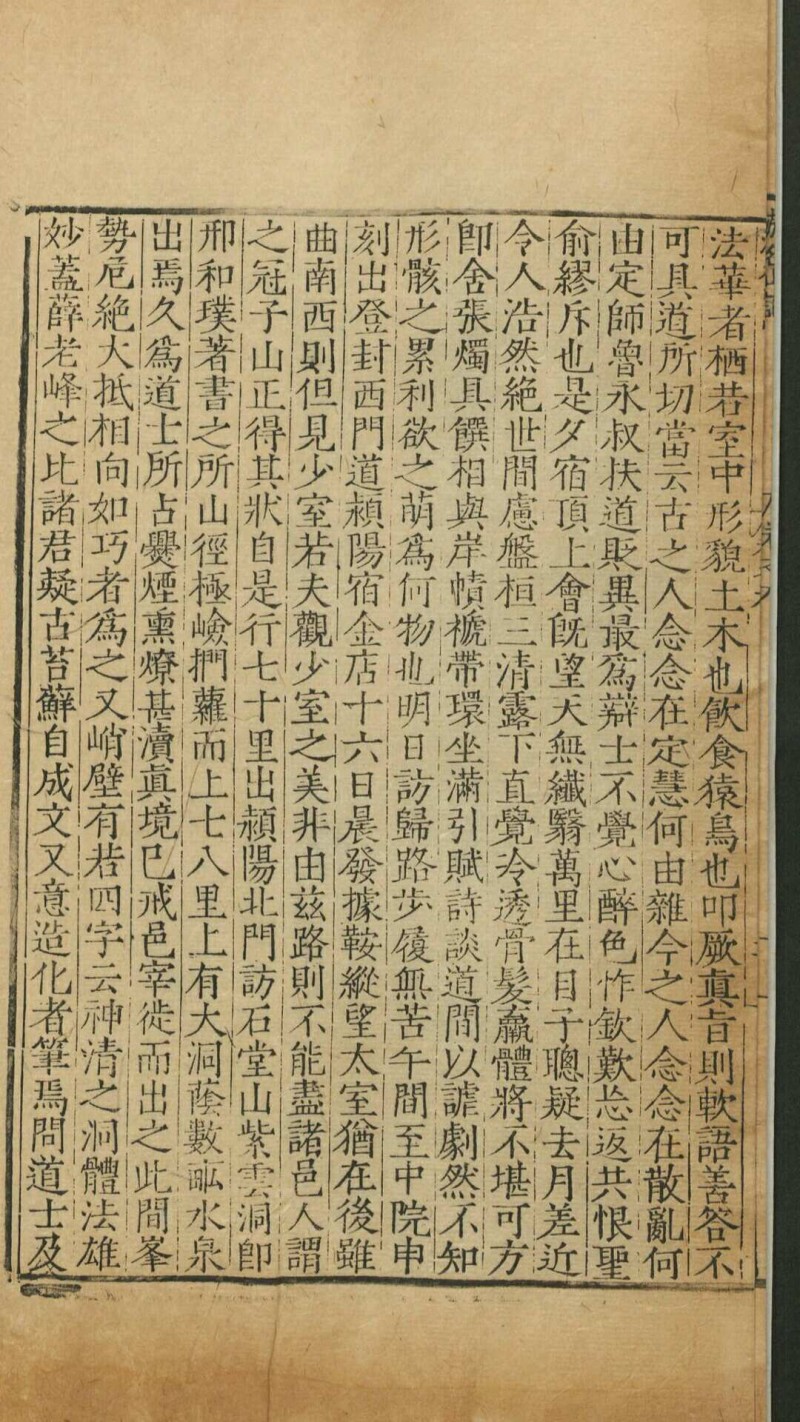 法華者栖若室中形貌土木也飲食猿鳥也叩厥真旨則軟語善答不
可具道所切當云古之人念念在定慧何由雜今之人念念在散亂何
由定師魯永叔扶道貶異最爲辯士不覺心醉色怍欽歎忘返共恨聖
俞繆斥也是夕宿頂上會旣望天無纖翳萬里在目子聰疑去月差近
令人浩然絶世間慮盤桓三清露下直覺冷透骨髮羸體將不堪可方
卽舍張燭具饌相與岸幘褫帶環坐滿引賦詩談道間以謔劇然不知
形骸之累利欲之萌爲何物也明日訪歸路步履無苦午間至中院申
刻出登封西門道潁陽宿金店十六日晨發據鞍縱望太室猶在後雖
曲南西則但見少室若夫觀少室之美非由茲路則不能盡諸邑人謂
之冠子山正得其狀自是行七十里出潁陽北門訪石堂山紫雲洞卽
邢和璞著書之所山徑極嶮捫蘿而上七八里上有大洞蔭數畝水泉
出焉久爲道士所占爨煙熏燎甚瀆真境已戒邑宰徙而出之此間峯
勢危絶大抵相向如巧者爲之又峭壁有若四字云神清之洞體法雄
妙蓋薛老峰之比諸君疑古苔蘚自成文又意造化者筆焉問道士及